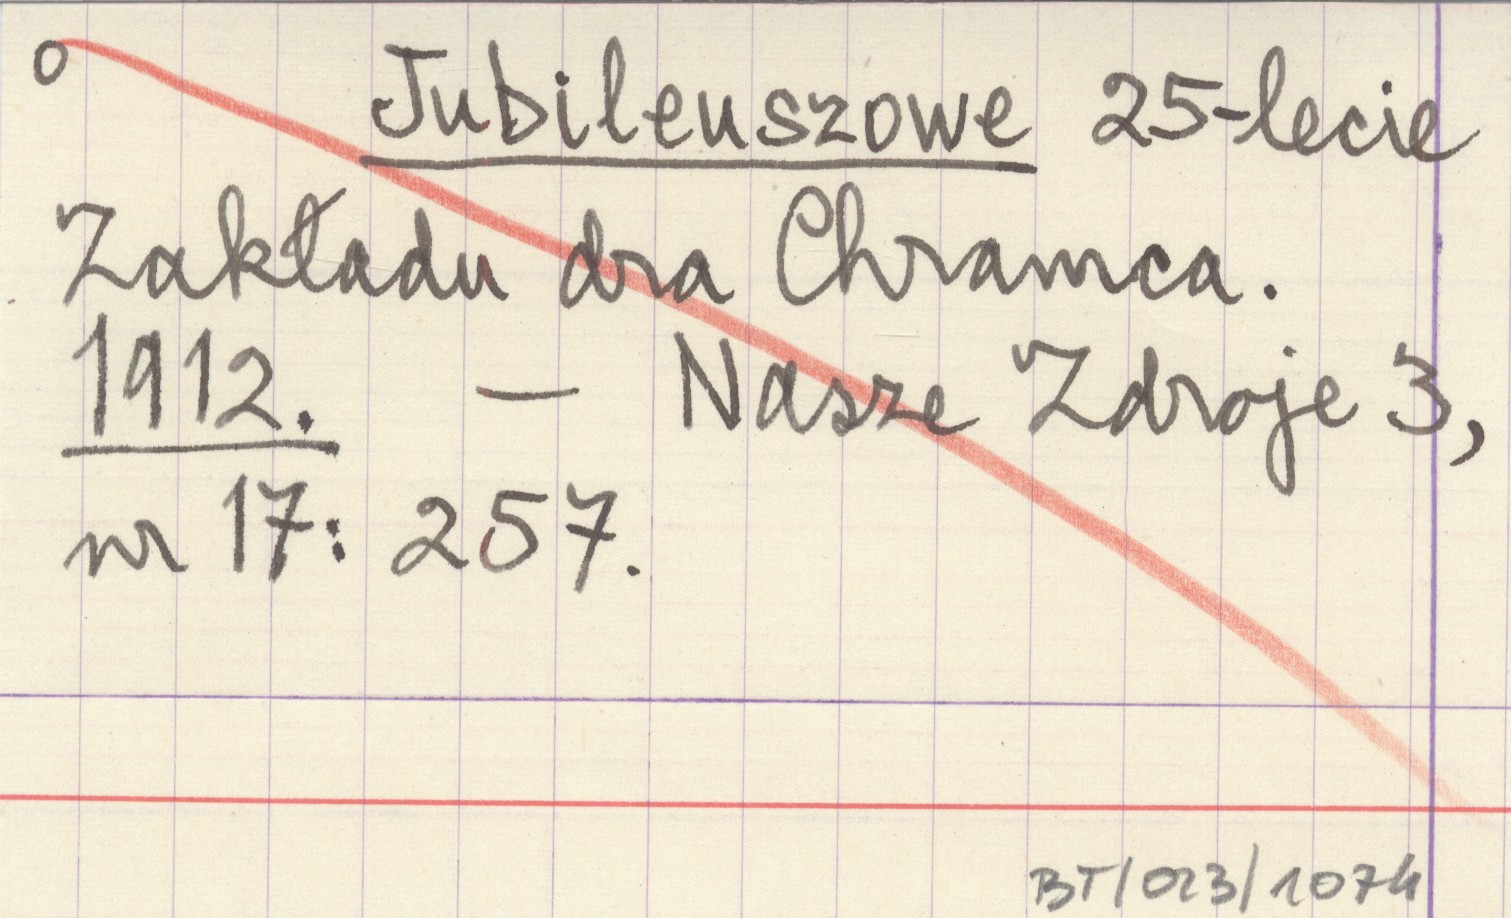 o Jubileuszowe 25-lecie
Zakładu dra Chramca.
1912. — Nasze Zdroje 3,
nr 17: 257.
BT/023/1074